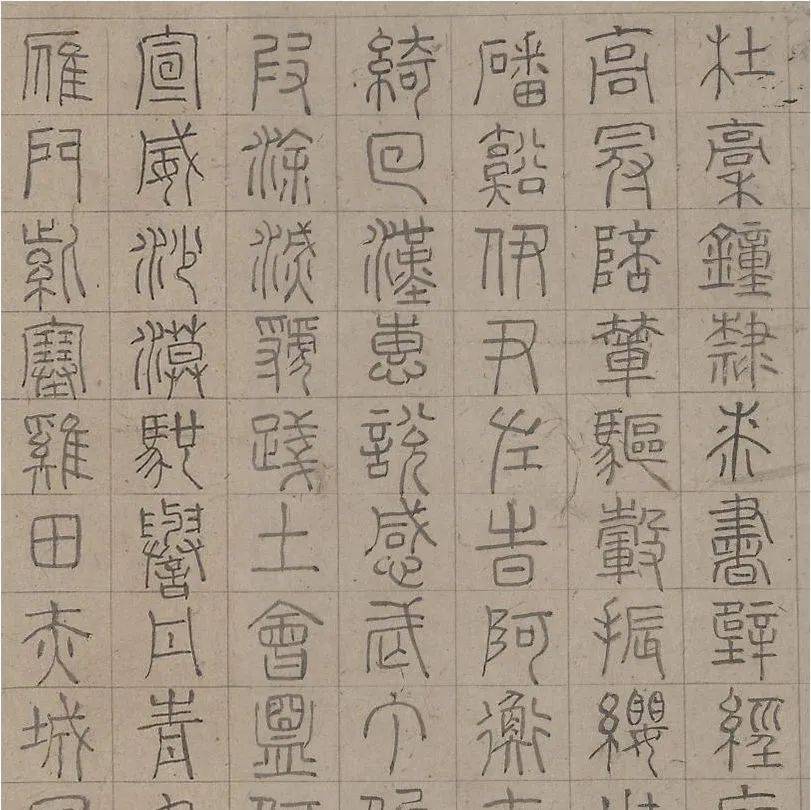 杜稾鐘隸桼書壁經
高冠陪輦驅轂振纓
磻谿伊尹左旹阿衡
綺回漢惠說感武丁
叚涂滅虢踐土會盟
宣威沙漠馳譽丹青
雁門紫塞雞田赤城